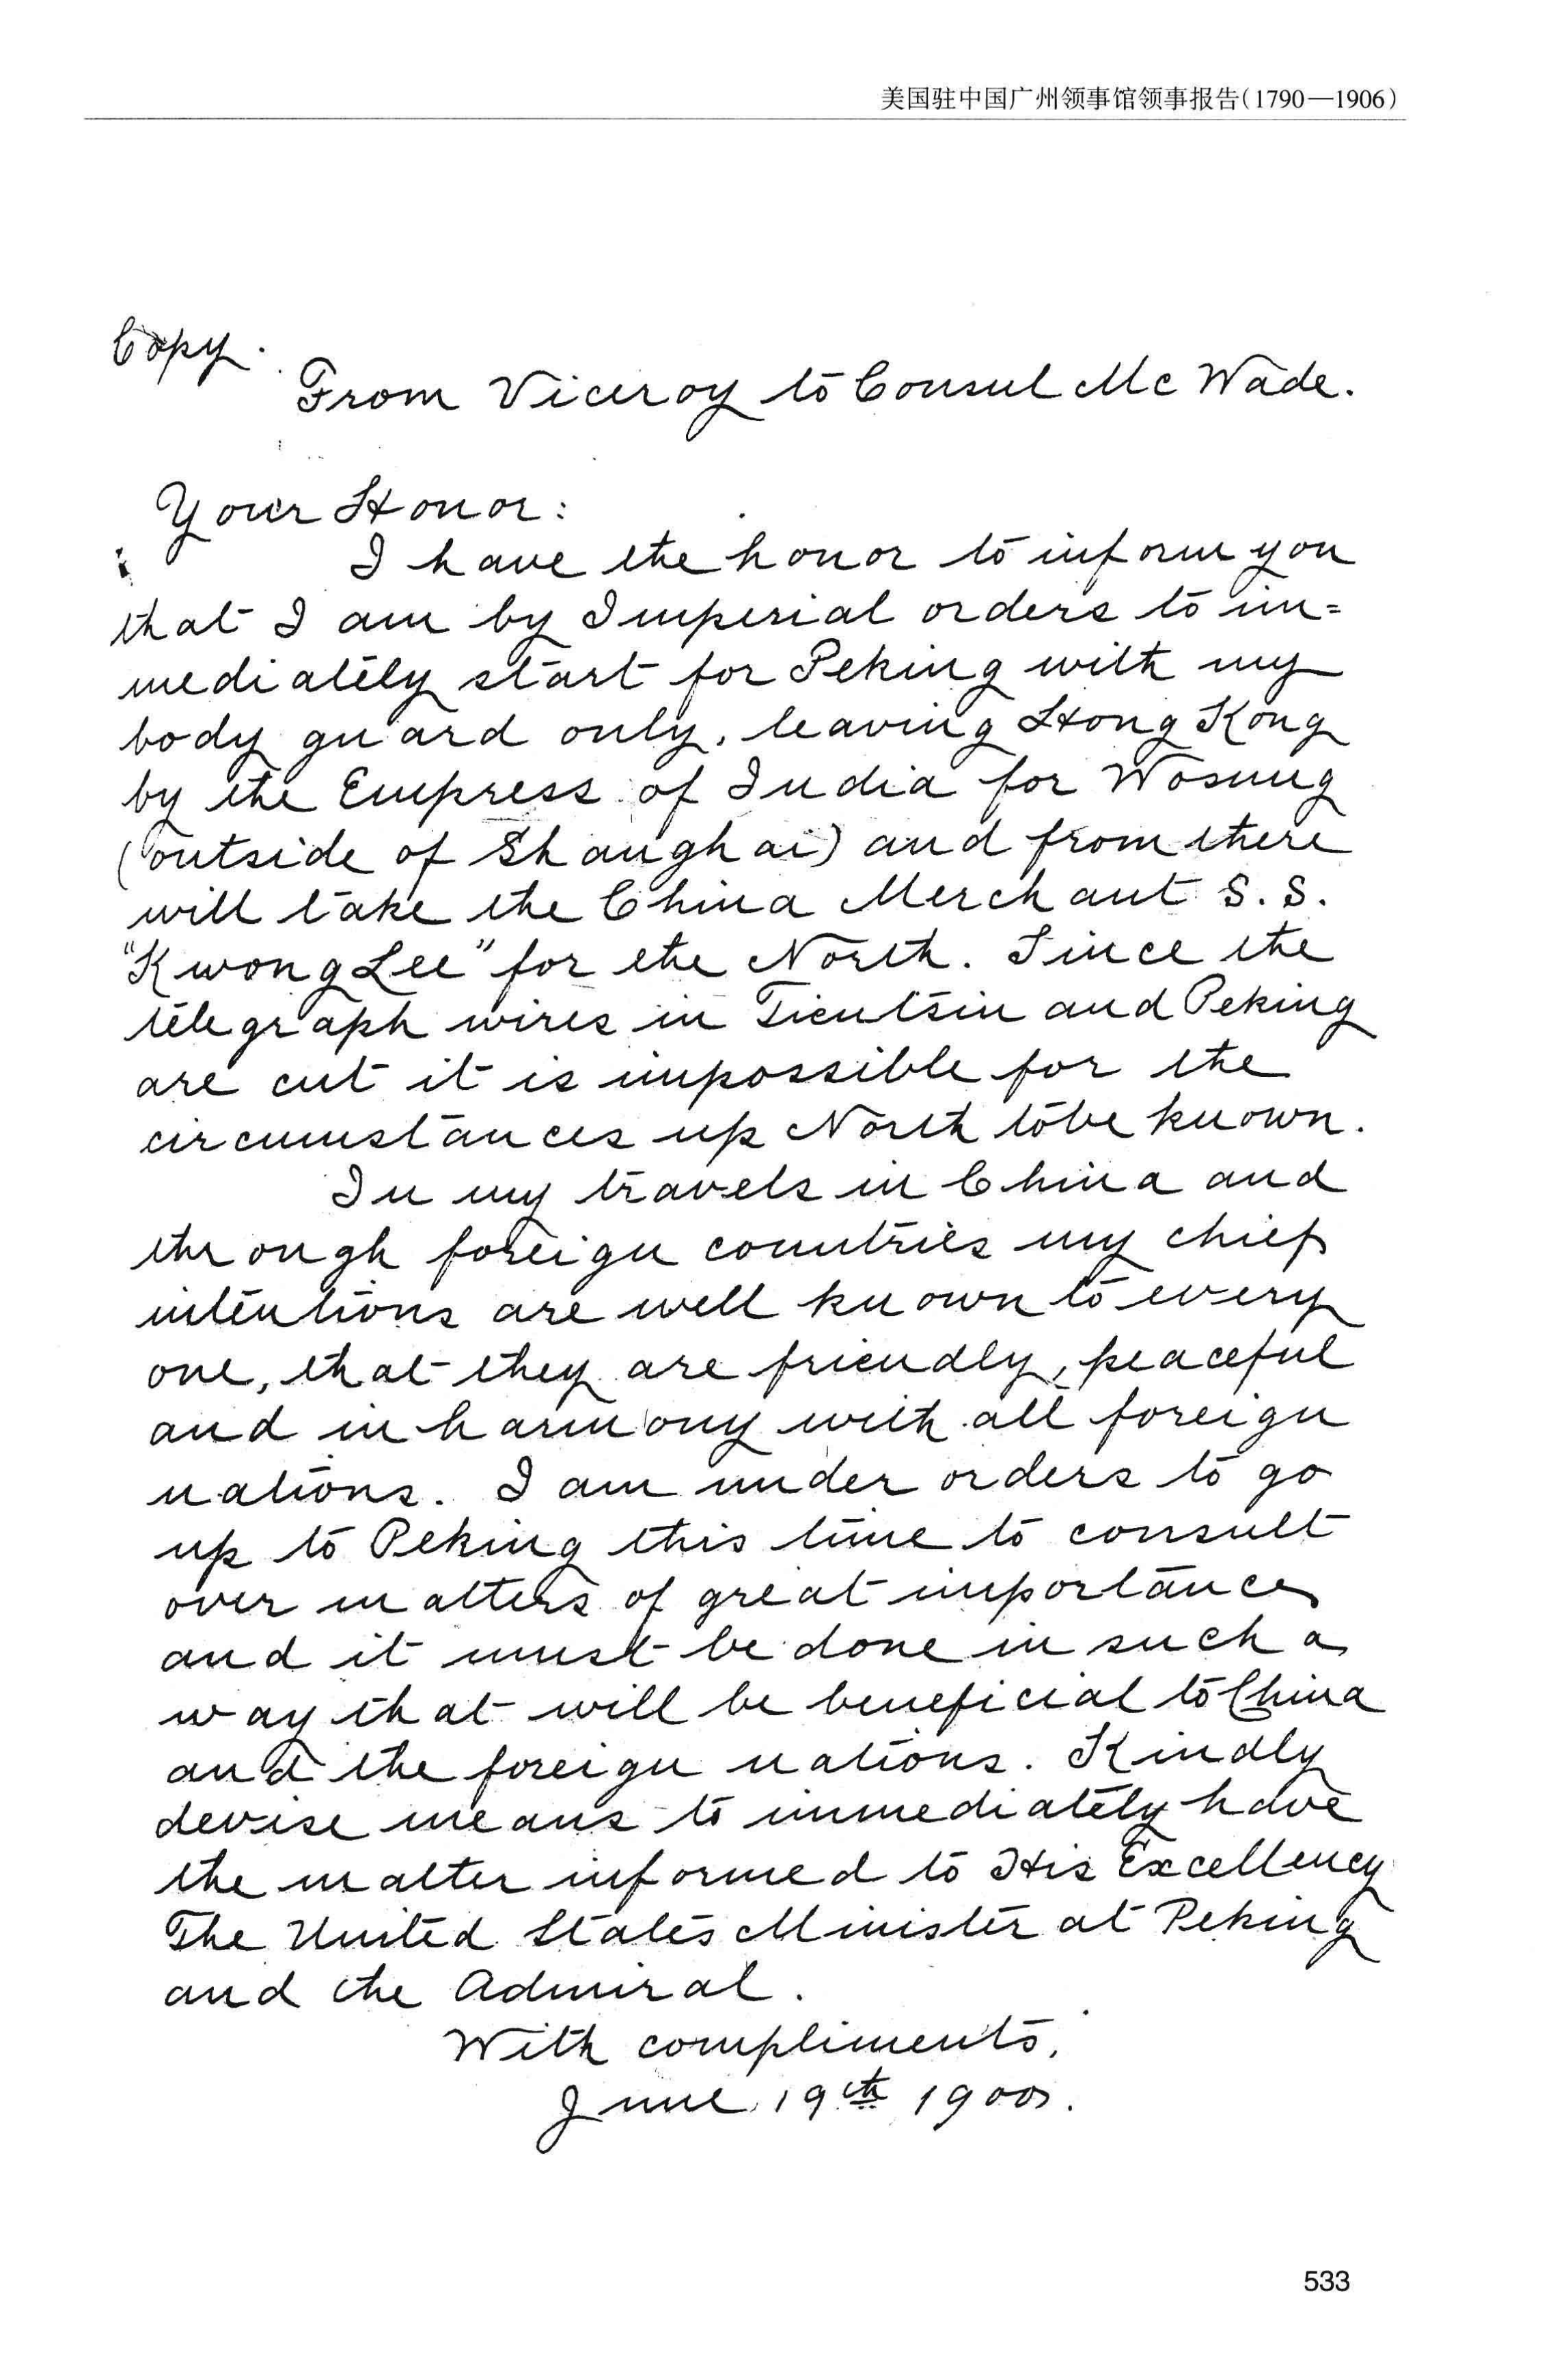 美国驻中国广州领事馆领事报告(1790—1906)
Copy.
From Viceroy to Consul McWade.
Your Honor:
I have the honor to inform you
that I am by Imperial orders to im=
mediately start for Peking with my
body guard only, leaving Hong Kong
by the Empress of India for Wosung
(outside of Shanghai) and from there
will take the China Merchant S. S.
"Kwong Lee" for the North. Since the
telegraph wires in Tientsin and Peking
are cut it is impossible for the
circumstances up North to be known.
In my travels in China and
through foreign countries my chief
intentions are well known to every
one, that they are friendly, peaceful
and in harmony with all foreign
nations. I am under orders to go
up to Peking this time to consult
over matters of great importance
and it must be done in such a
way that will be beneficial to China
and the foreign nations. Kindly
devise means to immediately have
the matter informed to His Excellency
The United States Minister at Peking
and the Admiral.
With compliments,
June 19th 1900.
533